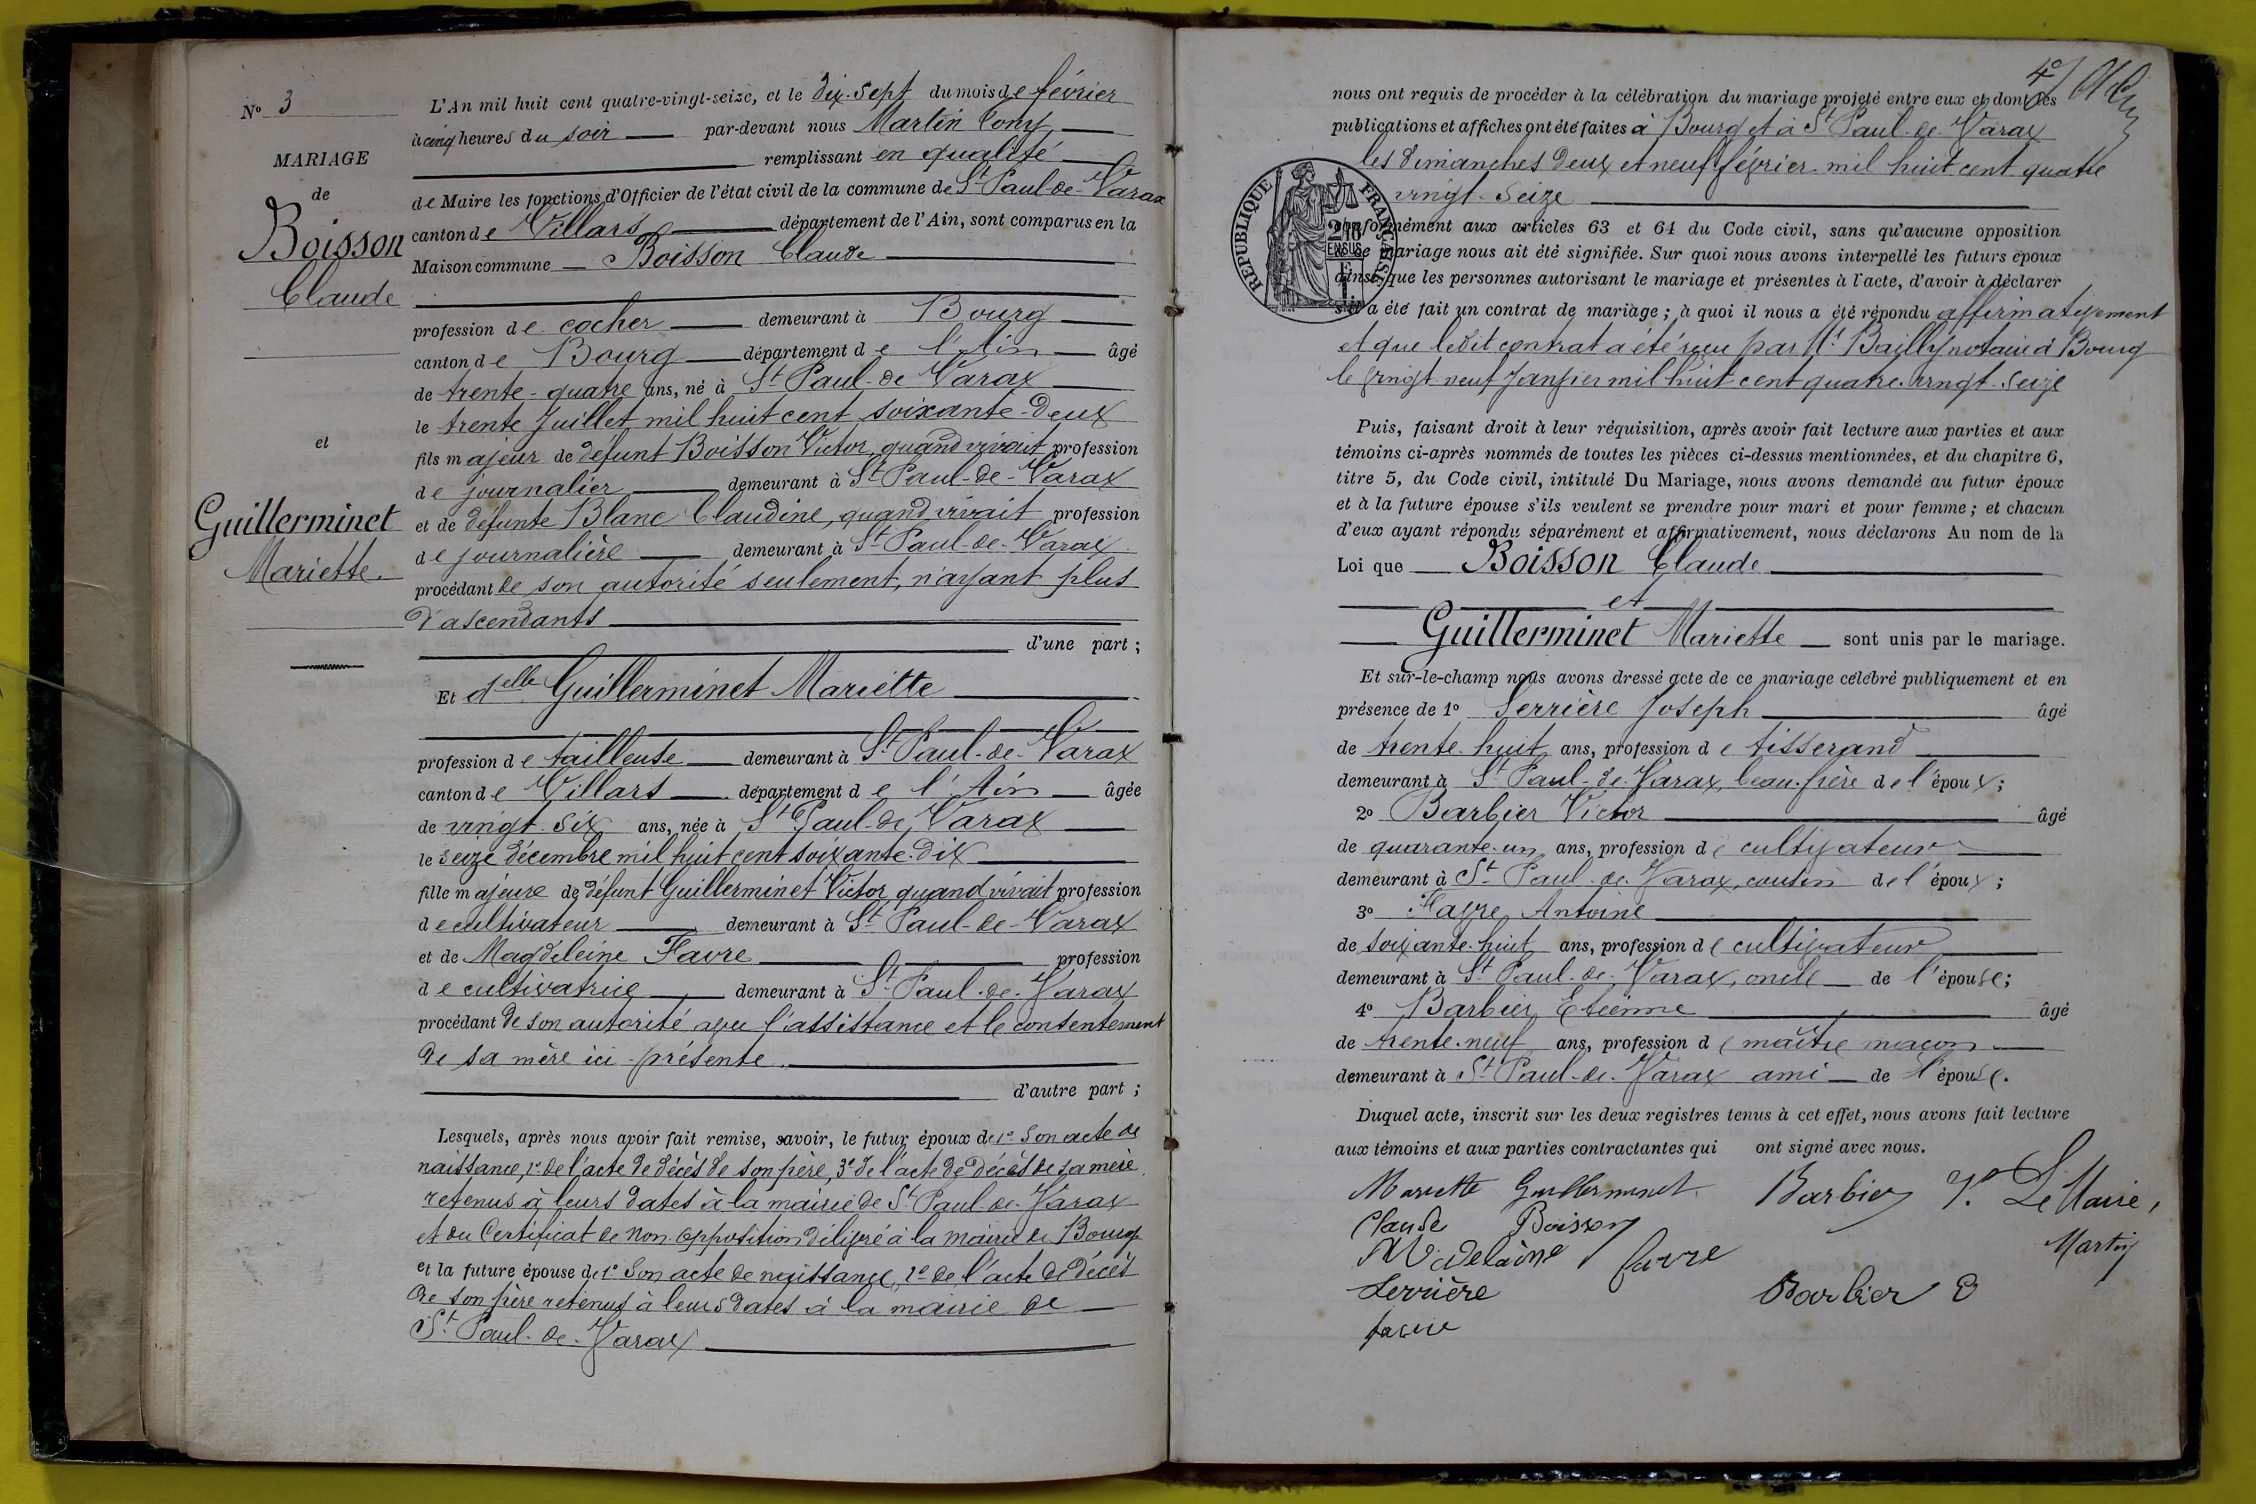 No 3
MARIAGE
de
Boisson
Claude
et
Guillerminet
Mariette.
L'An mil huit cent quatre-vingt-seize, et le dix-sept du mois de février
à cinq heures du soir par-devant nous Martin Tony,
remplissant en qualité
de Maire les fonctions d'Officier de l'état civil de la commune de St Paul-de-Varax
canton de Villars département de l'Ain, sont comparus en la
Maison commune Boisson Claude
profession de cocher demeurant à Bourg
canton de Bourg département de l'Ain âgé
de trente-quatre ans, né à St Paul-de Varax
le trente Juillet mil huit cent soixante-deux
fils majeur de défunt Boisson Victor, quand vivait profession
de journalier demeurant à St Paul-de-Varax
et de défunte Blanc Claudine, quand vivait profession
de journalière demeurant à St Paul-de-Varax
procédant de son autorité seulement, n'ayant plus
d'ascendants
d'une part ;
Et delle Guillerminet Mariette
profession de tailleuse demeurant à St Paul-de-Varax
canton de Villars département de l'Ain âgée
de vingt-six ans, née à St Paul-de-Varax
le seize décembre mil huit cent soixante-dix
fille majeure de défunt Guillerminet Victor, quand vivait profession
de cultivateur demeurant à St Paul-de-Varax
et de Magdeleine Favre profession
de cultivatrice demeurant à St Paul-de-Varax
procédant de son autorité avec l'assistance et le consentement
de sa mère ici-présente.
d'autre part ;
Lesquels, après nous avoir fait remise, savoir, le futur époux de 1o Son acte de
naissance, 2o de l'acte de décès de son père, 3o de l'acte de décès de sa mère
retenus à leurs dates à la mairie de St Paul-de-Varax
et du Certificat de non opposition délivré à la mairie de Bourg
et la future épouse de 1o Son acte de naissance, 2o de l'acte de décès
de son père retenus à leurs dates à la mairie de
St Paul-de-Varax
4o
nous ont requis de procéder à la célébration du mariage projeté entre eux et dont les
publications et affiches ont été faites à Bourg et à St Paul-de-Varax
les dimanches deux et neuf février mil huit cent quatre
vingt-seize
REPUBLIQUE FRANÇAISE
conformément aux articles 63 et 64 du Code civil, sans qu'aucune opposition
à ce mariage nous ait été signifiée. Sur quoi nous avons interpellé les futurs époux
ainsi que les personnes autorisant le mariage et présentes à l'acte, d'avoir à déclarer
s'il a été fait un contrat de mariage ; à quoi il nous a été répondu affirmativement
et que ledit contrat a été reçu par Me Bailly notaire à Bourg
le vingt neuf Janvier mil huit cent quatre-vingt-seize
Puis, faisant droit à leur réquisition, après avoir fait lecture aux parties et aux
témoins ci-après nommés de toutes les pièces ci-dessus mentionnées, et du chapitre 6,
titre 5, du Code civil, intitulé Du Mariage, nous avons demandé au futur époux
et à la future épouse s'ils veulent se prendre pour mari et pour femme ; et chacun
d'eux ayant répondu séparément et affirmativement, nous déclarons Au nom de la
Loi que Boisson Claude
et
Guillerminet Mariette sont unis par le mariage.
Et sur-le-champ nous avons dressé acte de ce mariage célébré publiquement et en
présence de 1o Serrière Joseph âgé
de trente-huit ans, profession de tisserand
demeurant à St Paul-de-Varax, beau-frère de l'époux ;
2o Barbier Victor âgé
de quarante-un ans, profession de cultivateur
demeurant à St Paul-de-Varax, cousin de l'époux ;
3o Favre Antoine
de soixante-huit ans, profession de cultivateur
demeurant à St Paul-de-Varax, oncle de l'épouse ;
4o Barbier Etienne âgé
de trente-neuf ans, profession de maître maçon
demeurant à St Paul-de-Varax ami de l'épouse.
Duquel acte, inscrit sur les deux registres tenus à cet effet, nous avons fait lecture
aux témoins et aux parties contractantes qui ont signé avec nous.
Mariette Guillerminet Barbier V. Le Maire,
Claude Boisson
favre Martin
Serrière Barbier E
favre